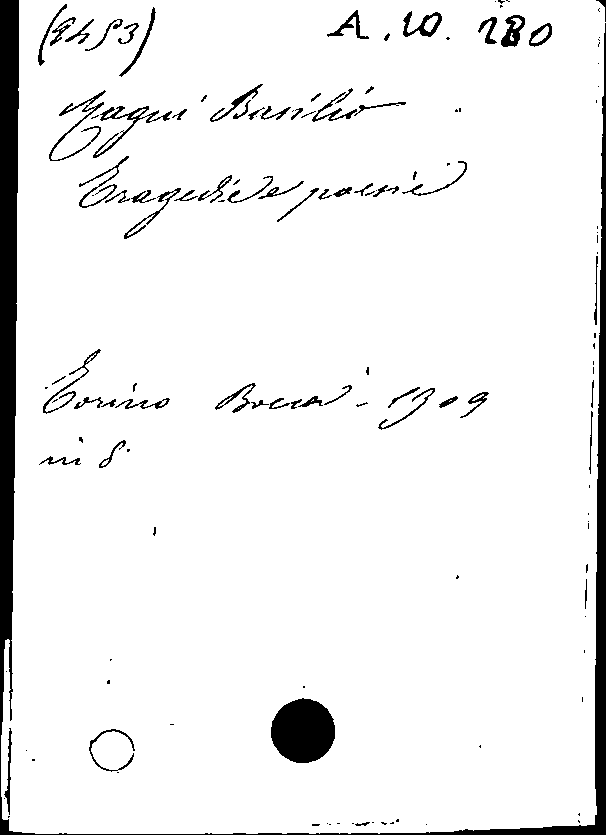 (2453) A. 10. 280
Magni Basilio
Tragedie e poesie
Torino Bocca - 1909
in 8.